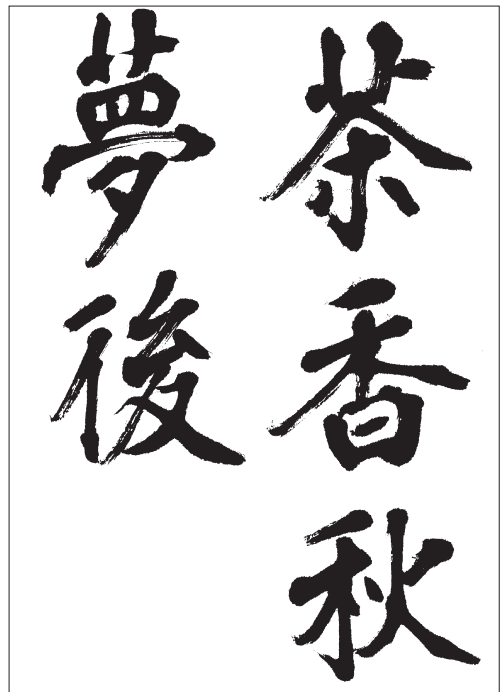 茶香秋
夢後